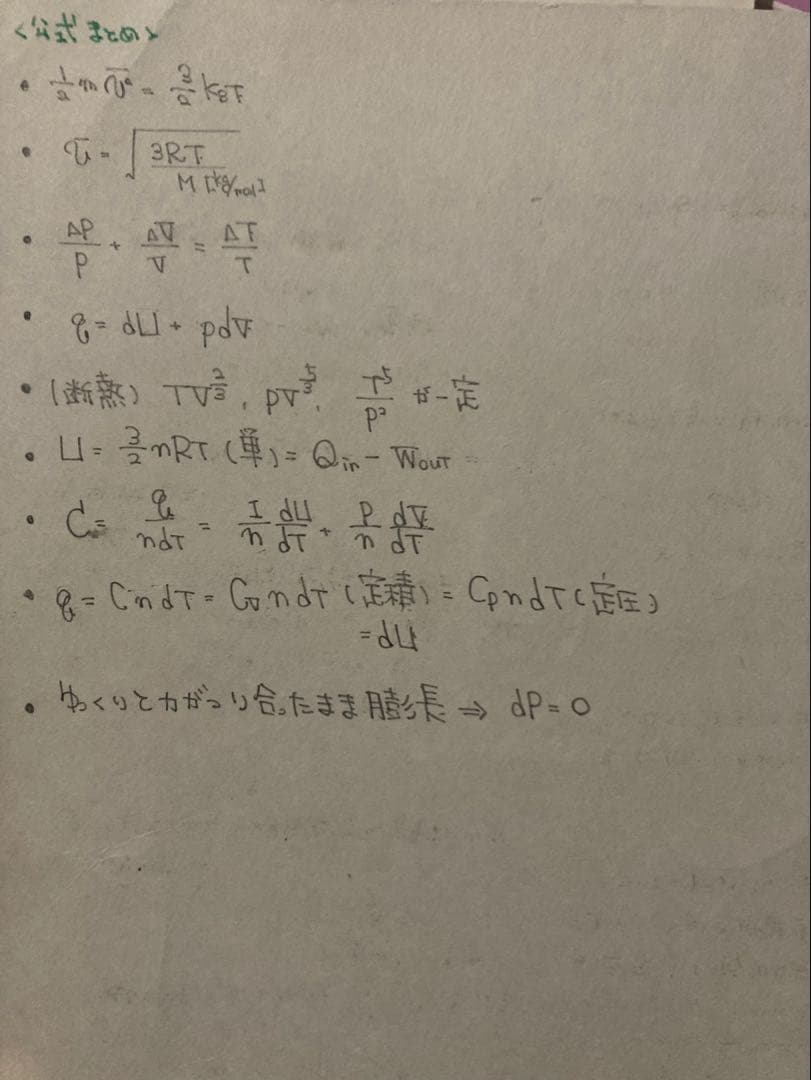 <公式まとめ>
• 1/2 m v̄² = 3/2 k_B T
• v̄ = √(3RT / M [kg/mol])
• ΔP/P + ΔV/V = ΔT/T
• q = dU + pdV
• (断熱) TV^(2/3), PV^(5/3), T⁵/P² が一定
• U = 3/2 nRT (単) = Q_in - W_out
• C = q/ndT = 1/n dU/dT + P/n dV/dT
• q = CndT = C_V ndT (定積) = C_P ndT (定圧)
= dU
• ゆっくりと力がつり合ったまま膨張 ⇒ dP = 0